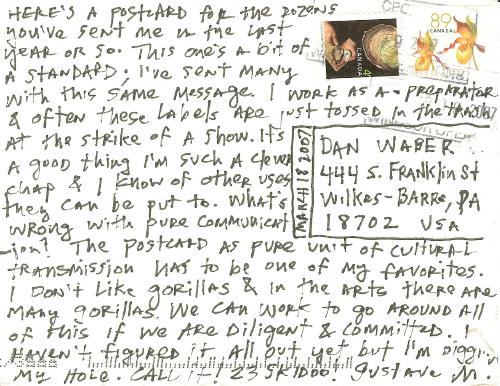 HERE'S A POSTCARD FOR the DOZENS
you've SENT ME IN the LAST
YEAR OR SO. THIS ONE'S A BIT OF
A STANDARD; I'VE SENT MANY
WITH THIS SAME MESSAGE. I WORK AS A PREPARATOR
& OFTEN THESE LABELS ARE JUST TOSSED IN the TRASH
AT the STRIKE OF A SHOW. ITS
A GOOD THING I'M SUCH A CLEVER
CHAP & I KNOW OF OTHER USES
they CAN BE PUT TO. WHAT'S
WRONG WITH PURE COMMUNICAT
ION? THE POSTCARD AS PURE UNIT OF CULTURAL
TRANSMISSION HAS TO BE ONE OF MY FAVORITES.
I DON'T LIKE GORILLAS & IN the ARTS THERE ARE
MANY GORILLAS. WE CAN WORK TO GO AROUND ALL
OF THIS IF WE ARE DILIGENT & COMMITTED. I
HAVEN'T FIGURED IT ALL OUT YET BUT I'M DIGGIN
MY HOLE. CALL IT! GUSTAVE .M.
MARCH 18 2007
DAN WABER
444 S. FRANKLIN ST
WILKES-BARRE, PA
18702 USA
CANADA
89
CANADA
CPC